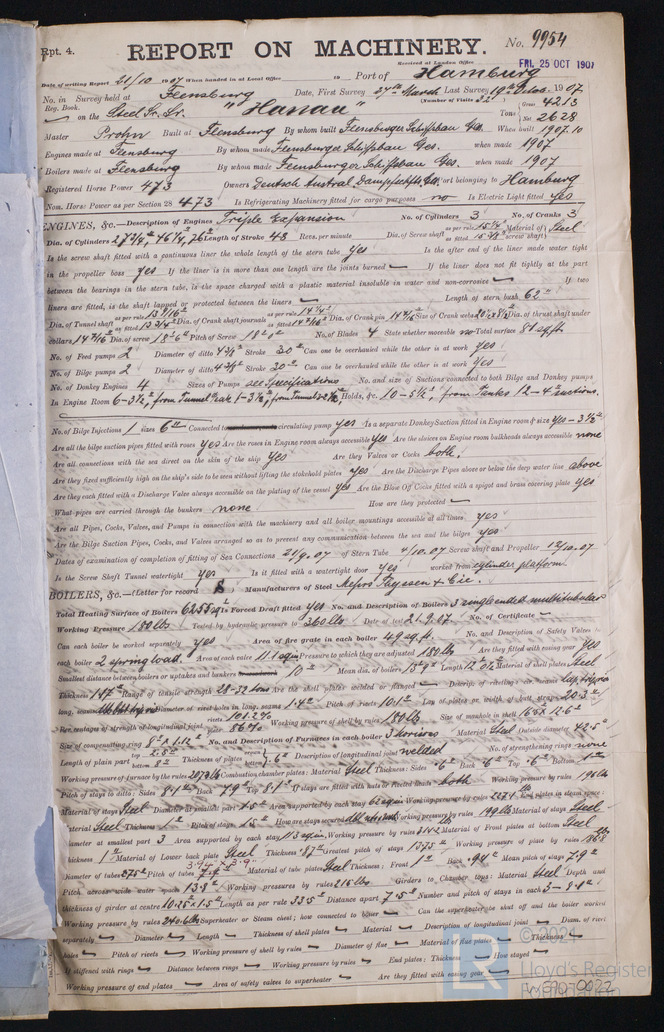 Rpt. 4.
REPORT ON MACHINERY.
No. 9954
Received at London Office
FRI. 25 OCT 1907
Date of writing Report 21/10 1907 When handed in at Local Office 19 Port of Hamburg
No. in Survey held at Flensburg Date, First Survey 27th March Last Survey 19th Octob. 1907
Reg. Book. (Number of Visits 22)
on the Steel Sc. Sr. "Hanau" Tons Gross 4213
Net 2628
Master Prohn Built at Flensburg By whom built Flensburger Schiffsbau Ges. When built 1907.10
Engines made at Flensburg By whom made Flensburger Schiffsbau Ges. when made 1907
Boilers made at Flensburg By whom made Flensburger Schiffsbau Ges. when made 1907
Registered Horse Power 473 Owners Deutsch Austral. Dampfschiffs Ges. Port belonging to Hamburg
Nom. Horse Power as per Section 28 473 Is Refrigerating Machinery fitted for cargo purposes no Is Electric Light fitted yes
ENGINES, &c.—Description of Engines Triple Expansion No. of Cylinders 3 No. of Cranks 3
Dia. of Cylinders 27 3/4, 46 1/4, 76 Length of Stroke 48 Revs. per minute Dia. of Screw shaft as per rule 15 1/4 Material of screw shaft Steel
Is the screw shaft fitted with a continuous liner the whole length of the stern tube yes Is the after end of the liner made water tight
in the propeller boss yes If the liner is in more than one length are the joints burned If the liner does not fit tightly at the part
between the bearings in the stern tube, is the space charged with a plastic material insoluble in water and non-corrosive If two
liners are fitted, is the shaft lapped or protected between the liners Length of stern bush 62"
Dia. of Tunnel shaft as per rule 13 7/16 as fitted 13 3/4 Dia. of Crank shaft journals as per rule 14 1/4 as fitted 14 7/16 Dia. of Crank pin 14 7/16 Size of Crank webs Dia. of thrust shaft under
collars 14 7/16 Dia. of screw 18'-6" Pitch of Screw 18'-0" No. of Blades 4 State whether moveable no Total surface 84 sq.ft
No. of Feed pumps 2 Diameter of ditto 4 3/4 Stroke 30" Can one be overhauled while the other is at work yes
No. of Bilge pumps 2 Diameter of ditto 4 3/4 Stroke 30" Can one be overhauled while the other is at work yes
No. of Donkey Engines 4 Sizes of Pumps see Specifications No. and size of Suctions connected to both Bilge and Donkey pumps
In Engine Room 6-3 1/2, from Tunnel 1-3 1/2, Holds, &c. 10-3 1/2, from Tanks 12-4" suctions.
No. of Bilge Injections 1 sizes 6" Connected to circulating pump yes Is a separate Donkey Suction fitted in Engine room & size yes - 3 1/2"
Are all the bilge suction pipes fitted with roses yes Are the roses in Engine room always accessible yes Are the sluices on Engine room bulkheads always accessible none
Are all connections with the sea direct on the skin of the ship yes Are they Valves or Cocks both.
Are they fixed sufficiently high on the ship's side to be seen without lifting the stokehold plates yes Are the Discharge Pipes above or below the deep water line above
Are they each fitted with a Discharge Valve always accessible on the plating of the vessel yes Are the Blow Off Cocks fitted with a spigot and brass covering plate yes
What pipes are carried through the bunkers none How are they protected
Are all Pipes, Cocks, Valves, and Pumps in connection with the machinery and all boiler mountings accessible at all times yes
Are the Bilge Suction Pipes, Cocks, and Valves arranged so as to prevent any communication between the sea and the bilges yes
Dates of examination of completion of fitting of Sea Connections 21/9.07 of Stern Tube 4/10.07 Screw shaft and Propeller 12/10.07
Is the Screw Shaft Tunnel watertight yes Is it fitted with a watertight door yes worked from cylinder platform.
BOILERS, &c.—(Letter for record S) Manufacturers of Steel Messrs Thyssen & Cie.
Total Heating Surface of Boilers 6255 sq.ft Forced Draft fitted yes No. and Description of Boilers 3 single ended multitubular
Working Pressure 180 lbs Tested by hydraulic pressure to 360 lbs Date of test 21.9.07 No. of Certificate
Can each boiler be worked separately yes Area of fire grate in each boiler 49 sq.ft. No. and Description of Safety Valves to
each boiler 2 spring load. Area of each valve 11.1 sq.in Pressure to which they are adjusted 180 lbs Are they fitted with easing gear yes
Smallest distance between boilers or uptakes and bunkers 10" Mean dia. of boilers 15'9" Length 12'0 1/2 Material of shell plates Steel
Thickness 1.17" Range of tensile strength 28-32 tons Are the shell plates welded or flanged Descrip. of riveting: cir. seams lap, trip. riv
long. seams Diameter of rivet holes in long. seams 1.4" Pitch of rivets 10.1" Lap of plates or width of butt straps 20.3"
Per centages of strength of longitudinal joint rivets 101.2% plate 86% Working pressure of shell by rules 180 lbs Size of manhole in shell 16.5 x 12.6"
Size of compensating ring 8" x 1.12" No. and Description of Furnaces in each boiler 3 Morisons Material Steel Outside diameter 42.5"
Length of plain part top 2.5" bottom 8" Thickness of plates .6" Description of longitudinal joint welded No. of strengthening rings none
Working pressure of furnace by the rules 207.3 lbs Combustion chamber plates: Material Steel Thickness: Sides .6" Back .6" Top .6" Bottom 1"
Pitch of stays to ditto: Sides 8.1" Back 7.9 Top 8.1" If stays are fitted with nuts or riveted heads both Working pressure by rules 196 lbs
Material of stays Steel Diameter at smallest part 1.5" Area supported by each stay 62 sq.in Working pressure by rules 227.1 End plates in steam space:
Material Steel Thickness 1" Pitch of stays 15" How are stays secured Working pressure by rules 199 lbs Material of stays Steel
Diameter at smallest part 3 Area supported by each stay Working pressure by rules 314.2 Material of Front plates at bottom Steel
Thickness 1" Material of Lower back plate Steel Thickness .87" Greatest pitch of stays 13.75" Working pressure of plate by rules
Diameter of tubes 3.75" Pitch of tubes 3.94 x 3.9" Material of tube plates Steel Thickness: Front 1" Back .94" Mean pitch of stays 7.9"
Pitch across wide water spaces 13.8" Working pressures by rules 215 lbs Girders to Chamber tops: Material Steel Depth and
thickness of girder at centre 10.25 x 1.5" Length as per rule 33.5" Distance apart 7.5" Number and pitch of stays in each 3 - 8.1"
Working pressure by rules 240.6 lbs Superheater or Steam chest; how connected to boiler Can the superheater be shut off and the boiler worked
separately Diameter Length Thickness of shell plates Material Description of longitudinal joint Diam. of rivet
holes Pitch of rivets Working pressure of shell by rules Diameter of flue Material of flue plates Thickness
If stiffened with rings Distance between rings Working pressure by rules End plates: Thickness How stayed
Working pressure of end plates Area of safety valves to superheater Are they fitted with easing gear
© 2021
LR
Lloyd's Register
Foundation
W690-0022